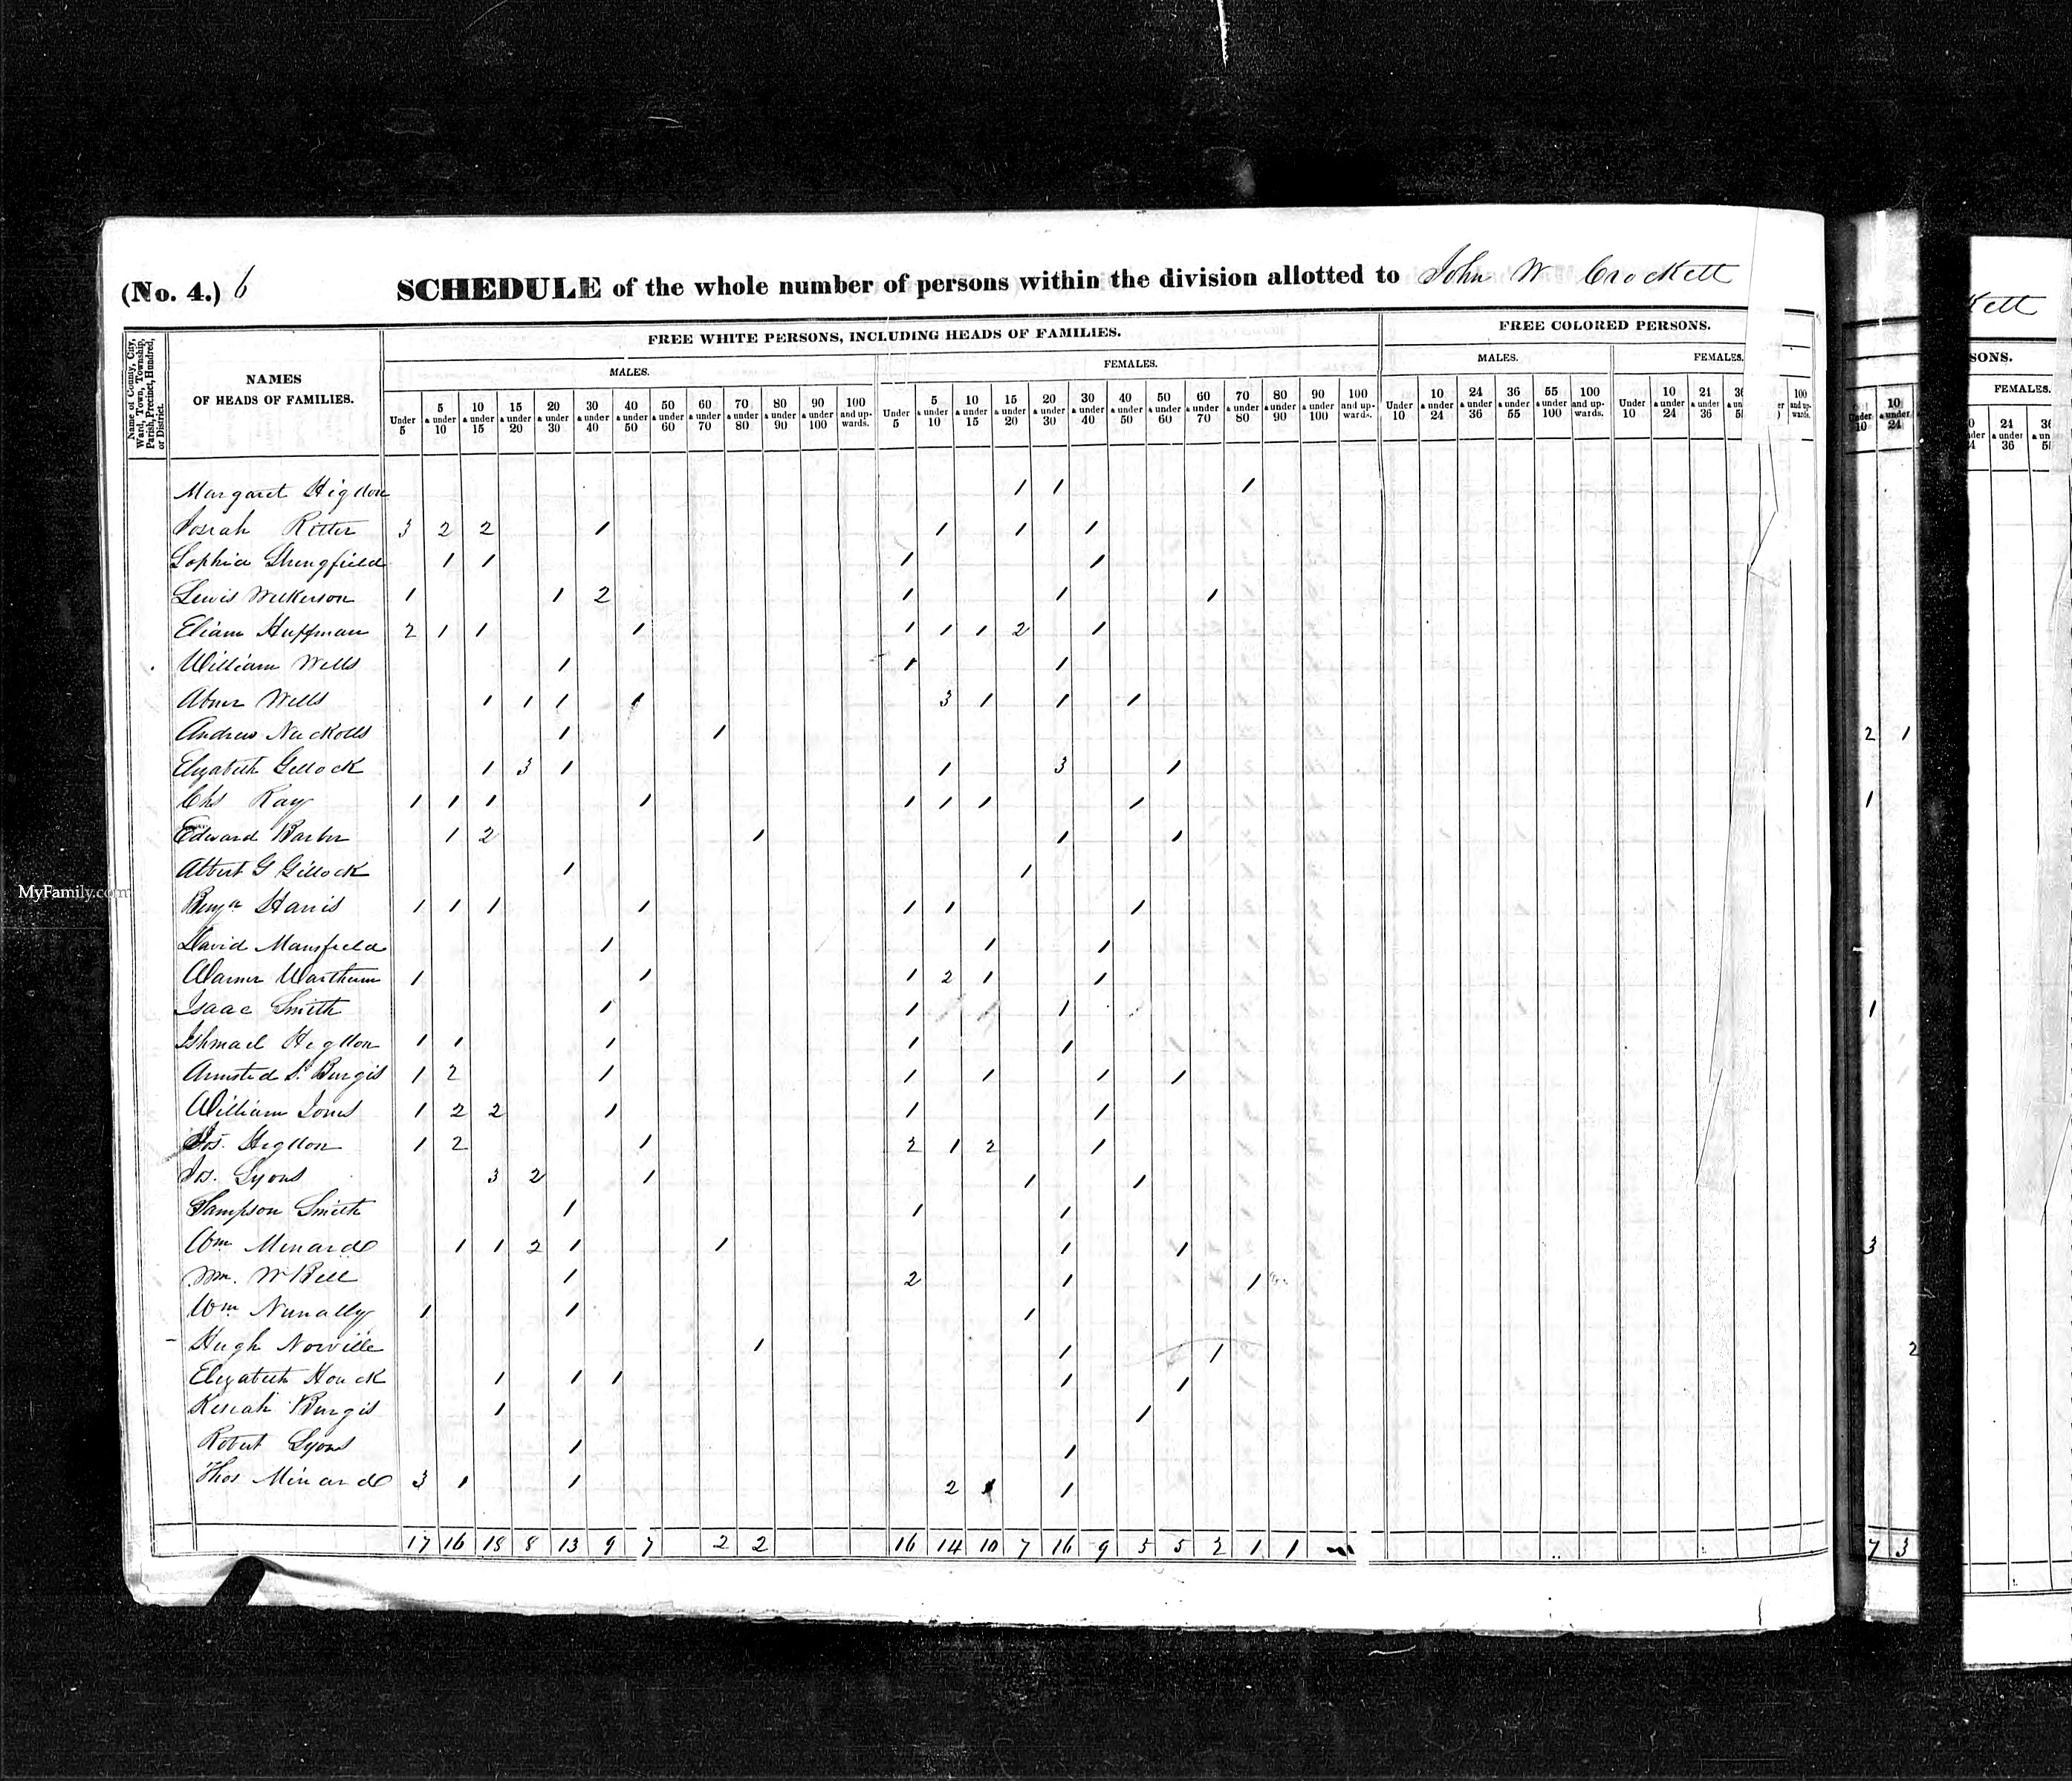 (No. 4.) 6 SCHEDULE of the whole number of persons within the division allotted to John W Crockett
Name of County, City, Ward, Town, Township, Parish, Precinct, Hundred, or District.
NAMES OF HEADS OF FAMILIES.
FREE WHITE PERSONS, INCLUDING HEADS OF FAMILIES.
FREE COLORED PERSONS.
MALES. FEMALES. MALES. FEMALES.
Under 5 5 & under 10 10 & under 15 15 & under 20 20 & under 30 30 & under 40 40 & under 50 50 & under 60 60 & under 70 70 & under 80 80 & under 90 90 & under 100 100 and upwards. Under 5 5 & under 10 10 & under 15 15 & under 20 20 & under 30 30 & under 40 40 & under 50 50 & under 60 60 & under 70 70 & under 80 80 & under 90 90 & under 100 100 and upwards. Under 10 10 & under 24 24 & under 36 36 & under 55 55 & under 100 100 and upwards. Under 10 10 & under 24 24 & under 36 100 and upwards.
Margaret Higdon 1 1 1
Josiah Ritter 3 2 2 1 1 1 1
Sophia 1 1 1 1
Lewis Wilkerson 1 1 2 1 1 1
Eliam Huffman 2 1 1 1 1 1 1 2 1
William Wells 1 1 1
Abner Wells 1 1 1 1 3 1 1 1
Andrew Nuckolls 1 1 2 1
Elizabeth Gillock 1 3 1 1 3 1
Chs Ray 1 1 1 1 1 1 1 1 1
Edward Barbr 1 2 1 1 1
Albert G Gillock 1 1
Benjn Harris 1 1 1 1 1 1 1
David Mansfield 1 1 1
Warner 1 1 1 2 1 1
Isaac Smith 1 1 1 1
Ishmael Higdon 1 1 1 1 1
Armsted S. Burgis 1 2 1 1 1 1 1
William Jones 1 2 2 1 1 1
Jos. Higdon 1 2 1 2 1 2 1
Jos. Lyons 3 2 1 1 1
Sampson Smith 1 1 1
Wm Minard 1 1 2 1 1 1 1 3
Wm. W Bell 1 2 1 1
Wm Nunally 1 1 1
Hugh Norville 1 1 1 2
Elizabeth Houck 1 1 1 1 1
Kesiah Burgis 1 1
Robert Lyons 1 1
Thos Minard 3 1 1 2 1 1
17 16 18 8 13 9 7 2 2 16 14 10 7 16 9 5 5 2 1 1 7 3
MyFamily.com
kett
SONS.
FEMALES.
24 & under 36